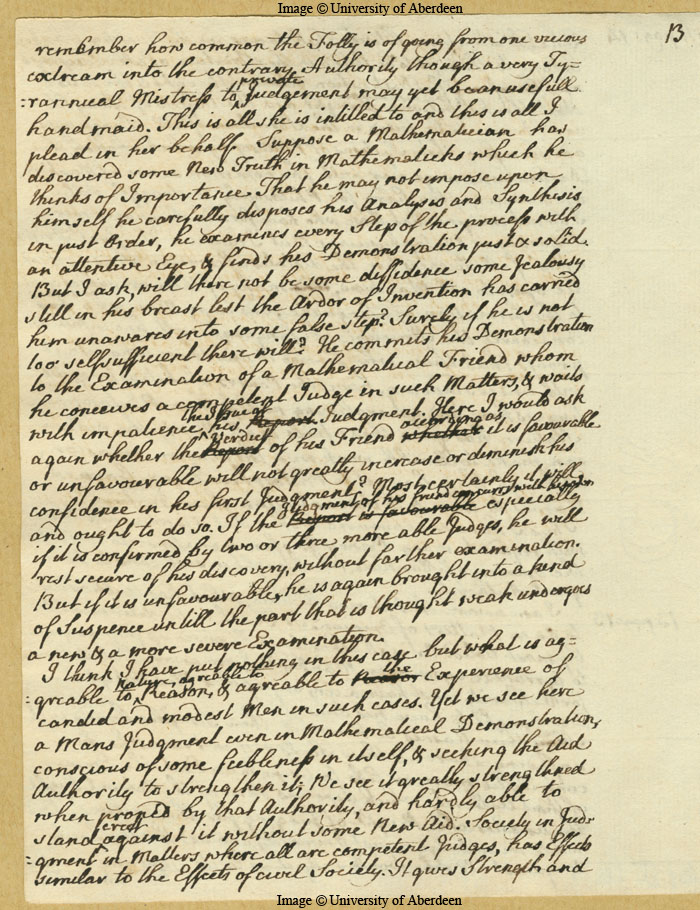 Image © University of Aberdeen
13
remember how common the Folly is of going from one vicious
extream into the contrary. Authority though a very Ty=
private
:rannical Mistress to Judgement may yet be an usefull
handmaid. This is all she is intitled to and this is all I
plead in her behalf. Suppose a Mathematician has
discovered some New Truth in Mathematicks which he
thinks of Importance. That he may not impose upon
himself he carefully disposes his Analysis and Synthesis
in just Order, he examines every Step of the process with
an attentive Eye, & finds his Demonstration just & solid.
But I ask, will there not be some diffidence some Jealousy
still in his breast lest the Ardor of Invention has carried
him unawares into some false step? Surely if he is not
too selfsufficient there will? He commits his Demonstration
to the Examination of a Mathematical Friend whom
he conceives a competent Judge in such Matters, & waits
the Issue of
with impatience his Report. Judgment. Here I would ask
Verdict according as
again whether the Report of his Friend whether it is favourable
or unfavourable will not greatly increase or diminish his
confidence in his first Judgment? Most certainly it will
Judgment of his friend concurrs with his own
and ought to do so. If the Report is favourable especially
if it is confirmed by two or three more able Judges, he will
rest secure of his discovery, without farther examination.
But if it is unfavourable, he is again brought into a kind
of Suspence untill the part that is thought weak undergoes
a new & a more severe Examination.
I think I have put nothing in this case but what is ag=
Nature, agreable to the
:greable to Reason, & agreable to Experience of
candid and modest Men in such cases. Yet we see here
a Mans Judgment even in Mathematical Demonstration,
conscious of some feebleness in itself, & seeking the Aid
Authority to strengthen it; We see it greatly strengthned
when proped by that Authority, and hardly able to
erect
stand against it without some New Aid. Society in Jud=
=gment in Matters where all are competent Judges, has Effects
similar to the Effects of civil Society. It gives Strength and
Image © University of Aberdeen